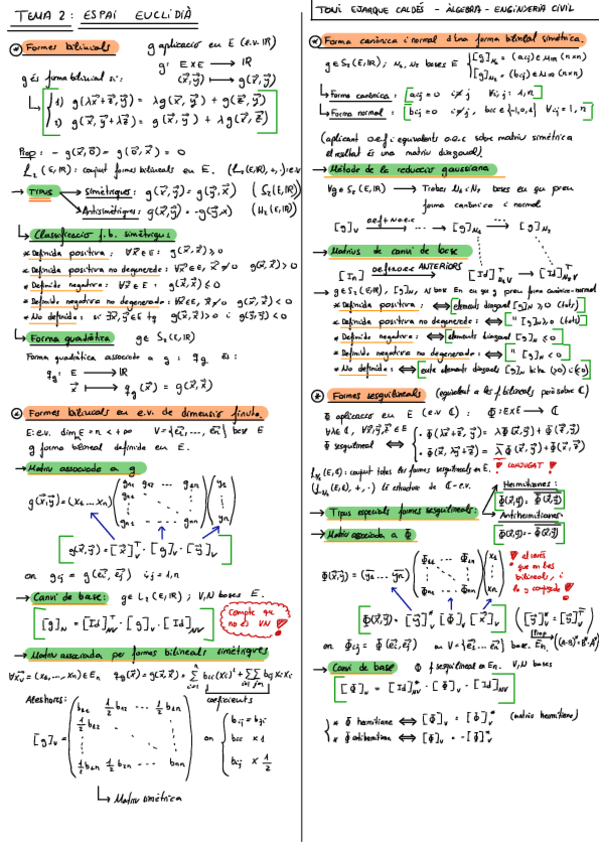 TEMA 2: ESPAI EUCLIDIÀ
* Formes bilineals
g aplicació en E (e.v. IR)
g: E×E → IR
(x⃗,y⃗) ↦ g(x⃗,y⃗)
g és forma bilineal si:
1) g(λx⃗+z⃗,y⃗) = λg(x⃗,y⃗) + g(z⃗,y⃗)
2) g(x⃗,y⃗+λz⃗) = g(x⃗,y⃗) + λg(x⃗,z⃗)
Prop: - g(x⃗,0⃗) = g(0⃗,x⃗) = 0
L₂(E,IR): conjunt formes bilineals en E. (L₂(E,IR),+,·) e.v
→ TIPUS
→ Simètriques: g(x⃗,y⃗) = g(y⃗,x⃗) (S₂(E,IR))
→ Antisimètriques: g(x⃗,y⃗) = -g(y⃗,x⃗) (H₂(E,IR))
→ Classificació f.b. simètriques
* Definida positiva: ∀x⃗∈E: g(x⃗,x⃗) ≥ 0
* Definida positiva no degenerada: ∀x⃗∈E, x⃗≠0 g(x⃗,x⃗) > 0
* Definida negativa: ∀x⃗∈E: g(x⃗,x⃗) ≤ 0
* Definida negativa no degenerada: ∀x⃗∈E, x⃗≠0 g(x⃗,x⃗) < 0
* No definida: si ∃x⃗,y⃗∈E tq g(x⃗,x⃗) > 0 i g(y⃗,y⃗) < 0
→ Forma quadràtica g∈S₂(E,IR)
Forma quadràtica associada a g: q_g és:
q_g: E → IR
x⃗ ↦ q_g(x⃗) = g(x⃗,x⃗)
* Formes bilineals en e.v. de dimensió finita.
E: e.v. dim E = n < +∞ V = {e⃗₁, ..., e⃗ₙ} base E
g forma bilineal definida en E.
→ Matriu associada a g
g(x⃗,y⃗) = (x₁ ... xₙ) (g₁₁ g₁₂ ... g₁ₙ
g₂₁
g₂ₙ ... gₙₙ) (y₁
yₙ)
g(x⃗,y⃗) = [x⃗]ᵀᵥ · [g]ᵥ · [y⃗]ᵥ
on gᵢⱼ = g(e⃗ᵢ, e⃗ⱼ) i,j = 1,n
→ Canvi de base: g∈L₂(E,IR); V,N bases E.
[g]_N = [Id]ᵀ_NV · [g]_V · [Id]_NV
Compte que no és VN!
→ Matriu associada per formes bilineals simètriques
∀x⃗ᵥ = (x₁, ..., xₙ)∈Eₙ q_g(x⃗) = g(x⃗,x⃗) = Σ bᵢᵢ(xᵢ)² + Σ bᵢⱼxᵢxⱼ
Aleshores:
coeficients
[g]ᵥ = (b₁₁ ½b₁₂ ... ½b₁ₙ
½b₁₂
½b₁ₙ ½b₂ₙ ... bₙₙ)
on
bᵢⱼ = bⱼᵢ
bᵢᵢ × 1
bᵢⱼ × ½
→ Matriu simètrica
TONI EJARQUE CALDÉS - ÀLGEBRA - ENGINYERIA CIVIL
* Forma canònica i normal d'una forma bilineal simètrica.
g∈S₂(E,IR); N₁, N₂ bases E
[g]_N₁ = (aᵢⱼ)∈M_IR(n×n)
[g]_N₂ = (bᵢⱼ)∈M_IR(n×n)
→ Forma canònica: aᵢⱼ = 0 i≠j ∀i,j: 1,n
→ Forma normal: bᵢⱼ = 0 i≠j bᵢᵢ∈{-1,0,1} ∀i,j = 1,n
(aplicant o.e.f i equivalents o.e.c sobre matriu simètrica
el resultat és una matriu diagonal).
→ Mètode de la reducció gaussiana
∀g∈S₂(E,IR) → Trobar N₁ i N₂ bases en que g preu
forma canònica i normal
[g]ᵥ → ... → [g]_N₁ ... → [g]_N₂
→ Matrius de canvi de base
[Iₙ] ANTERIORS → [Id]ᵀ_N₁V → [Id]ᵀ_N₂V
→ g∈S₂(E,IR), [g]_N, N base En en que g preu forma canònica-normal
* Definida positiva: ⟺ elements diagonal [g]_N ≥ 0 (tots)
* Definida positiva no degenerada: ⟺ " [g]_N > 0 (tots)
* Definida negativa: ⟺ elements diagonal [g]_N ≤ 0
* Definida negativa no degenerada: ⟺ " [g]_N < 0
* No definida: ⟺ entre elements diagonal [g]_N hi ha (>0) i (<0)
* Formes sesquilineals (equivalent a les f. bilineals però sobre ℂ)
Φ aplicació en E (e.v ℂ) : Φ: E×E → ℂ
∀λ∈ℂ, ∀x⃗,y⃗,z⃗∈E
Φ sesquilineal ⟺
· Φ(λx⃗+z⃗,y⃗) = λΦ(x⃗,y⃗) + Φ(z⃗,y⃗)
· Φ(x⃗,λy⃗+z⃗) = λ̄Φ(x⃗,y⃗) + Φ(x⃗,z⃗)
! CONJUGAT !
conjunt totes les formes sesquilineals en E.
té estructura de ℂ-e.v.
→ Tipus especials formes sesquilineals:
Hermitianes:
Φ(x⃗,y⃗) = Φ(y⃗,x⃗)
Antihermitianes:
Φ(x⃗,y⃗) = -Φ(y⃗,x⃗)
→ Matriu associada a Φ
Φ(x⃗,y⃗) = (ȳ₁ ... ȳₙ) (Φ₁₁ ... Φₙ₁
Φ₁ₙ ... Φₙₙ) (x₁
xₙ)
! al revés que en les bilineals, i la y conjugada !
Φ(x⃗,y⃗) = [y⃗]*ᵥ [Φ]ᵥ [x⃗]ᵥ
on Φᵢⱼ = Φ(e⃗ᵢ, e⃗ⱼ) en V = {e⃗₁ ... e⃗ₙ} base. Eₙ
Prop (A·B)* = B*·A*
→ Canvi de base Φ f sesquilineal en Eₙ. V,N bases
[Φ]_N = [Id]*_NV · [Φ]_V · [Id]_NV
* Φ hermitiana ⟺ [Φ]ᵥ = [Φ]*ᵥ (matriu hermitiana)
* Φ antihermitiana ⟺ [Φ]ᵥ = -[Φ]*ᵥ